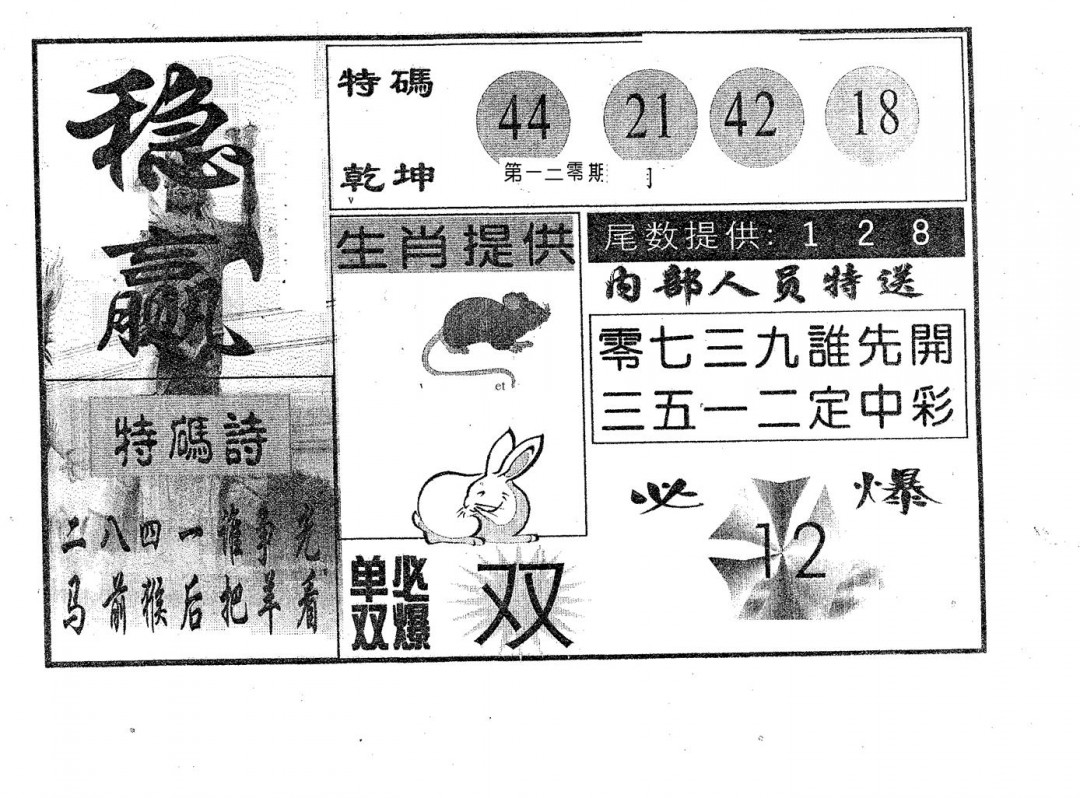 稳赢
特碼
乾坤
44 21 42 18
第一二零期
生肖提供
et
尾数提供: 1 2 8
内部人员特送
零七三九誰先開
三五一二定中彩
特碼詩
二八四一谁争光
马前猴后把羊看
单必
双爆
双
必爆
12